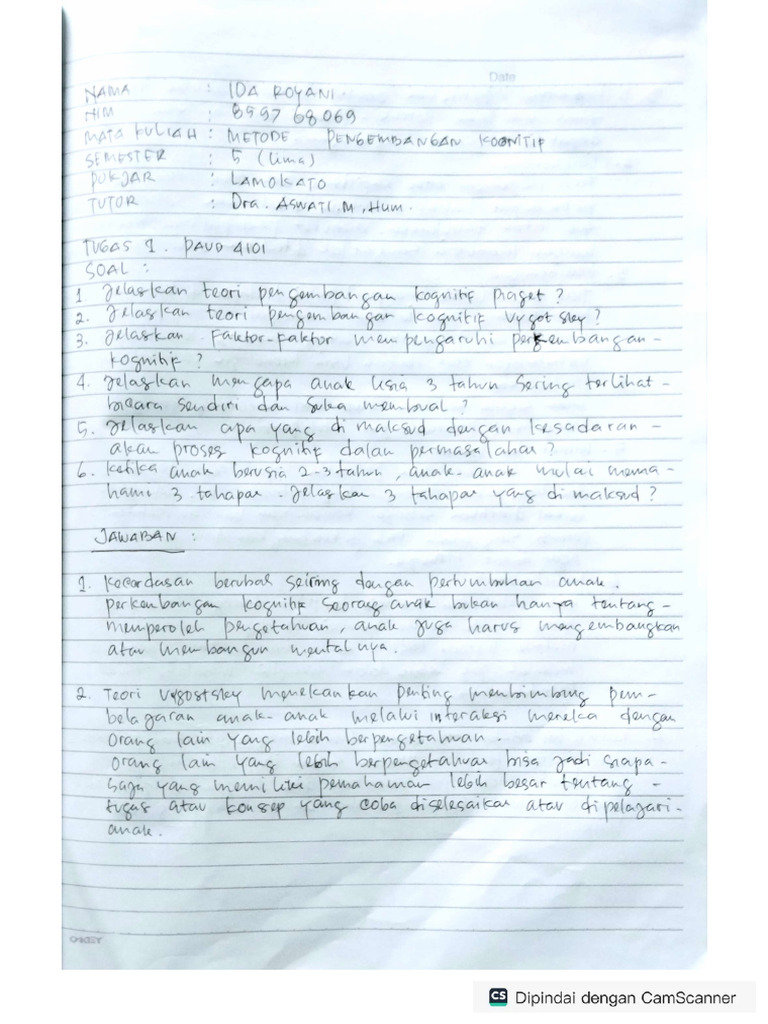 Date
NAMA : IDA ROYANI.
NIM : 859768069
MATA KULIAH : METODE PENGEMBANGAN KOGNITIF
SEMESTER : 5 (lima)
POKJAR : LAMOKATO
TUTOR : Dra. ASWATI.M,Hum.
TUGAS 1. PAUD 4101
SOAL :
1. Jelaskan teori pengembangan kognitif Piaget ?
2. Jelaskan teori pengembangan kognitif Vygotsky ?
3. Jelaskan Faktor-faktor mempengaruhi perkembangan-
kognitif ?
4. Jelaskan mengapa anak usia 3 tahun sering terlihat-
bicara sendiri dan suka membual ?
5. Jelaskan apa yang di maksud dengan kesadaran -
akan proses kognitif dalam permasalahan ?
6. Ketika anak berusia 2-3 tahun, anak-anak mulai mema-
hami 3 tahapan. Jelaskan 3 tahapan yang di maksud ?
JAWABAN :
1. Kecerdasan berubah seiring dengan pertumbuhan anak.
perkembangan kognitif seorang anak bukan hanya tentang-
memperoleh pengetahuan, anak juga harus mengembangkan
atau membangun mentalnya.
2. Teori Vygostsky menekankan penting membimbing pem-
belajaran anak-anak melalui interaksi mereka dengan
orang lain yang lebih berpengetahuan.
orang lain yang lebih berpengetahuan bisa jadi siapa-
saja yang memiliki pemahaman lebih besar tentang -
tugas atau konsep yang coba diselesaikan atau dipelajari-
anak.
CS Dipindai dengan CamScanner